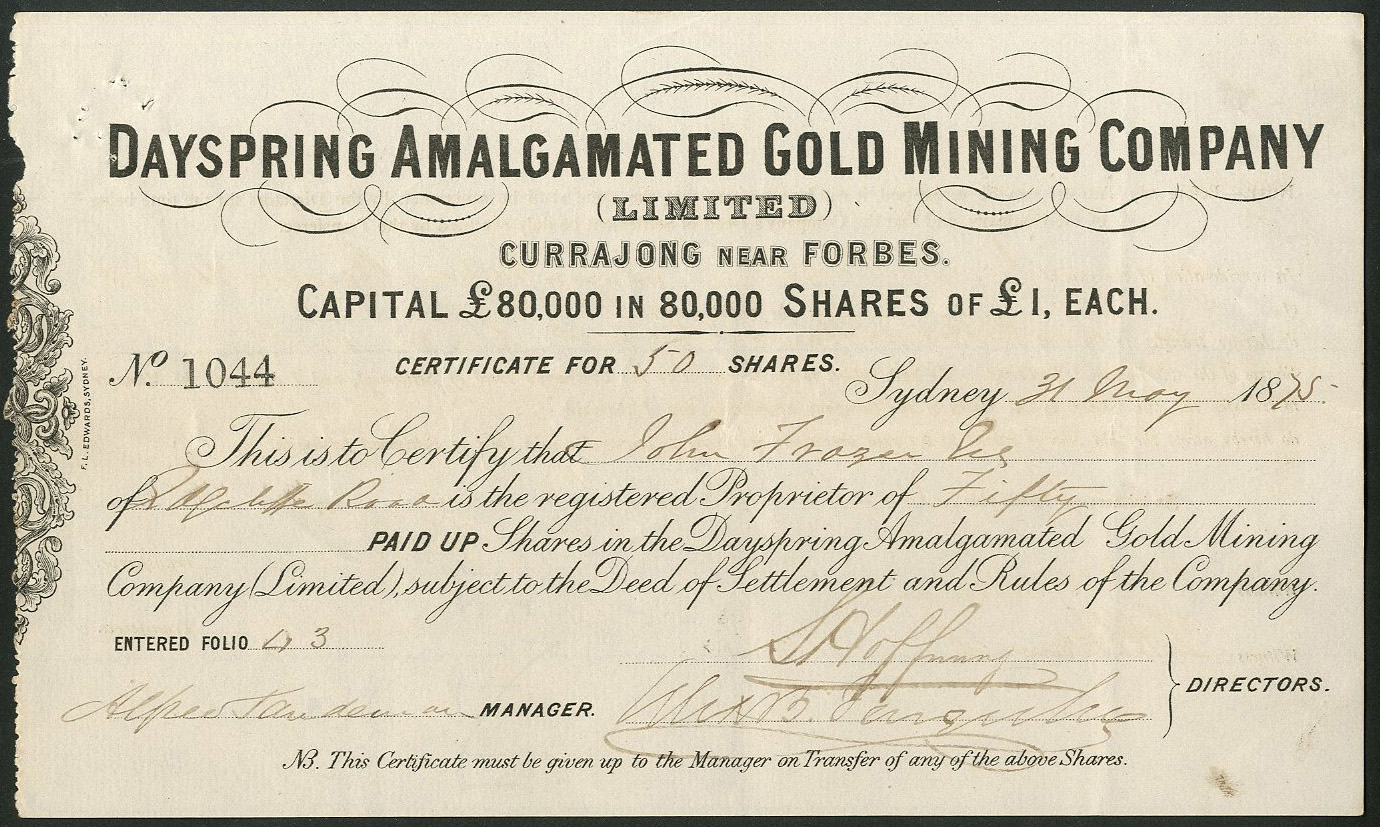 DAYSPRING AMALGAMATED GOLD MINING COMPANY
(LIMITED)
CURRAJONG NEAR FORBES.
CAPITAL £80,000 IN 80,000 SHARES OF £1, EACH.
No. 1044 CERTIFICATE FOR 50 SHARES.
Sydney 31 May 1875.
This is to Certify that John Frazer Esq
of is the registered Proprietor of Fifty
PAID UP Shares in the Dayspring Amalgamated Gold Mining
Company (Limited), subject to the Deed of Settlement and Rules of the Company.
ENTERED FOLIO 43
S Hoffnung
Alfred Sandeman MANAGER. DIRECTORS.
NB. This Certificate must be given up to the Manager on Transfer of any of the above Shares.
F. L. EDWARDS, SYDNEY.